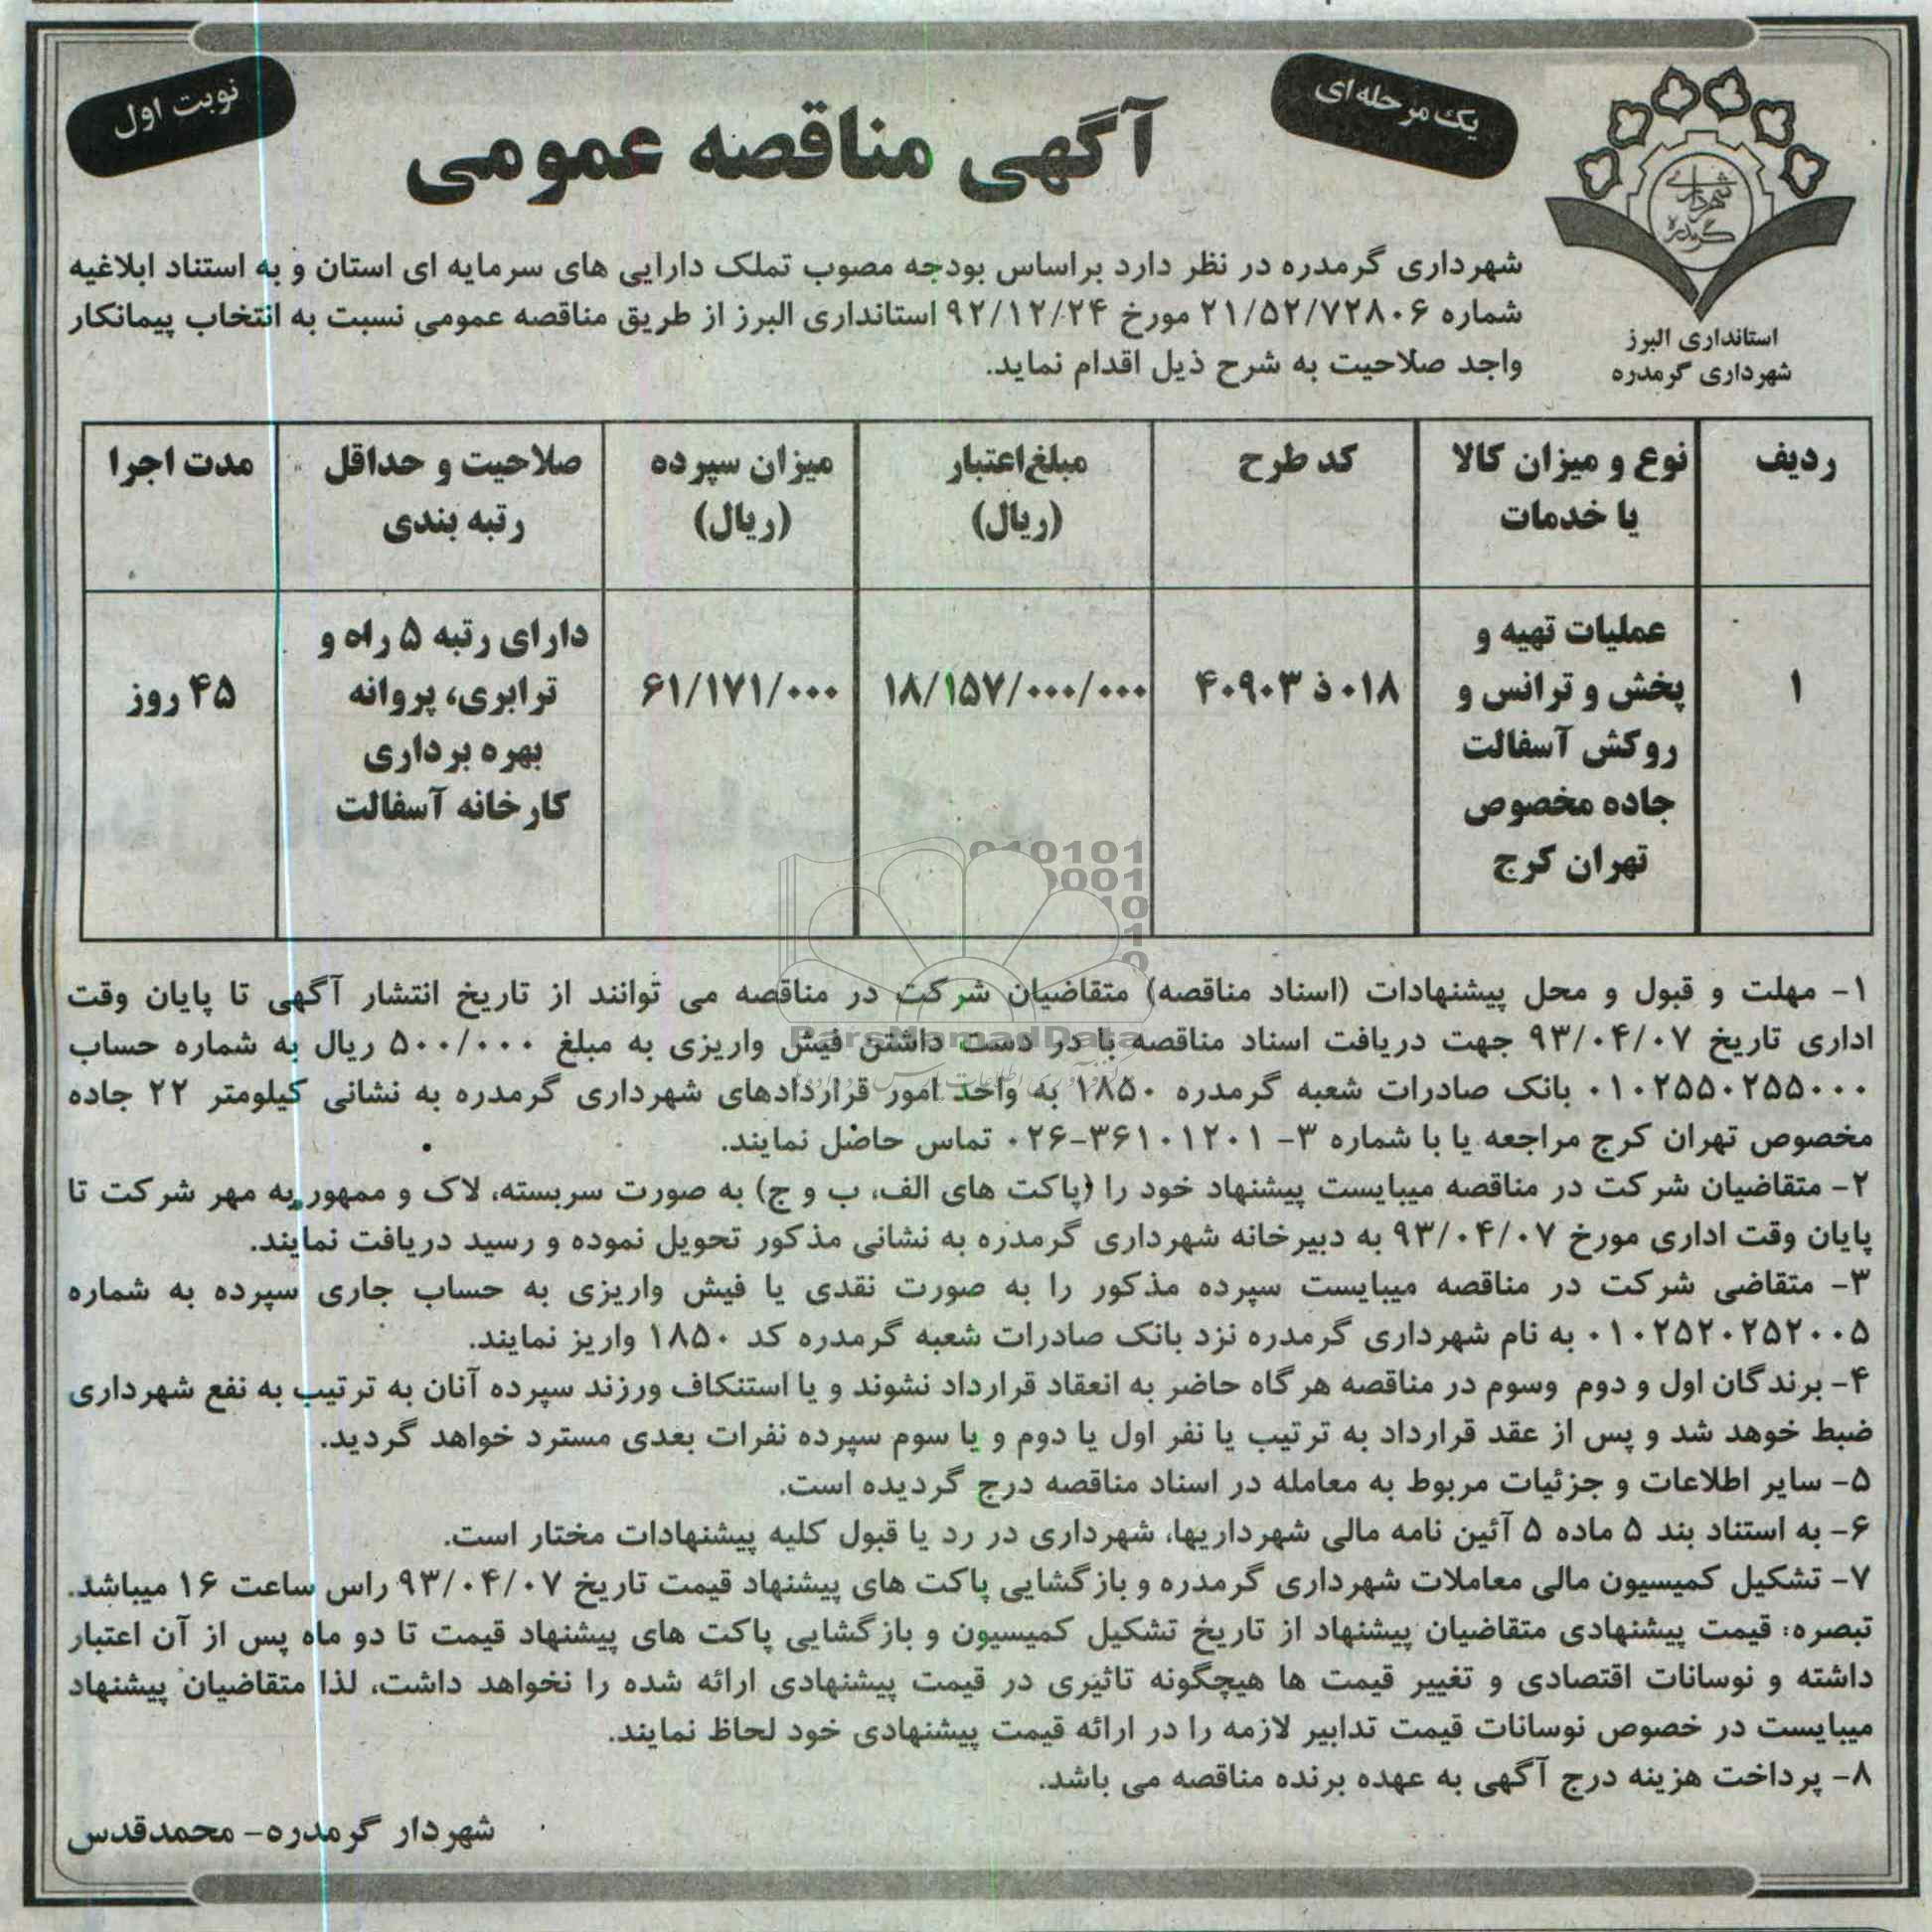 نوبت اول
یک مرحله ای
آگهی مناقصه عمومی
شهرداری گرمدره
استانداری البرز
شهرداری گرمدره
شهرداری گرمدره در نظر دارد براساس بودجه مصوب تملک دارایی های سرمایه ای استان و به استناد ابلاغیه
شماره ۲۱/۵۲/۷۲۸۰۶ مورخ ۹۲/۱۲/۲۴ استانداری البرز از طریق مناقصه عمومی نسبت به انتخاب پیمانکار
واجد صلاحیت به شرح ذیل اقدام نماید.
ردیف
نوع و میزان کالا
یا خدمات
کد طرح
مبلغ اعتبار
(ریال)
میزان سپرده
(ریال)
صلاحیت و حداقل
رتبه بندی
مدت اجرا
۱
عملیات تهیه و
پخش و ترانس و
روکش آسفالت
جاده مخصوص
تهران کرج
۰۱۸ ذ ۴۰۹۰۳
۱۸/۱۵۷/۰۰۰/۰۰۰
۶۱/۱۷۱/۰۰۰
دارای رتبه ۵ راه و
ترابری، پروانه
بهره برداری
کارخانه آسفالت
۴۵ روز
۱- مهلت و قبول و محل پیشنهادات (اسناد مناقصه) متقاضیان شرکت در مناقصه می توانند از تاریخ انتشار آگهی تا پایان وقت
اداری تاریخ ۹۳/۰۴/۰۷ جهت دریافت اسناد مناقصه با در دست داشتن فیش واریزی به مبلغ ۵۰۰/۰۰۰ ریال به شماره حساب
۰۱۰۲۵۵۰۲۵۵۰۰۰ بانک صادرات شعبه گرمدره ۱۸۵۰ به واحد امور قراردادهای شهرداری گرمدره به نشانی کیلومتر ۲۲ جاده
مخصوص تهران کرج مراجعه یا با شماره ۳- ۳۶۱۰۱۲۰۱-۰۲۶ تماس حاصل نمایند.
۲- متقاضیان شرکت در مناقصه میبایست پیشنهاد خود را (پاکت های الف، ب و ج) به صورت سربسته، لاک و ممهور به مهر شرکت تا
پایان وقت اداری مورخ ۹۳/۰۴/۰۷ به دبیرخانه شهرداری گرمدره به نشانی مذکور تحویل نموده و رسید دریافت نمایند.
۳- متقاضی شرکت در مناقصه میبایست سپرده مذکور را به صورت نقدی یا فیش واریزی به حساب جاری سپرده به شماره
۰۱۰۲۵۲۰۲۵۲۰۰۵ به نام شهرداری گرمدره نزد بانک صادرات شعبه گرمدره کد ۱۸۵۰ واریز نمایند.
۴- برندگان اول و دوم وسوم در مناقصه هرگاه حاضر به انعقاد قرارداد نشوند و یا استنکاف ورزند سپرده آنان به ترتیب به نفع شهرداری
ضبط خوهد شد و پس از عقد قرارداد به ترتیب یا نفر اول یا دوم و یا سوم سپرده نفرات بعدی مسترد خواهد گردید.
۵- سایر اطلاعات و جزئیات مربوط به معامله در اسناد مناقصه درج گردیده است.
۶- به استناد بند ۵ ماده ۵ آئین نامه مالی شهرداریها، شهرداری در رد یا قبول کلیه پیشنهادات مختار است.
۷- تشکیل کمیسیون مالی معاملات شهرداری گرمدره و بازگشایی پاکت های پیشنهاد قیمت تاریخ ۹۳/۰۴/۰۷ راس ساعت ۱۶ میباشد.
تبصره: قیمت پیشنهادی متقاضیان پیشنهاد از تاریخ تشکیل کمیسیون و بازگشایی پاکت های پیشنهاد قیمت تا دو ماه پس از آن اعتبار
داشته و نوسانات اقتصادی و تغییر قیمت ها هیچگونه تاثیری در قیمت پیشنهادی ارائه شده را نخواهد داشت، لذا متقاضیان پیشنهاد
میبایست در خصوص نوسانات قیمت تدابیر لازمه را در ارائه قیمت پیشنهادی خود لحاظ نمایند.
۸- پرداخت هزینه درج آگهی به عهده برنده مناقصه می باشد.
شهردار گرمدره- محمدقدس
ParsNamadData